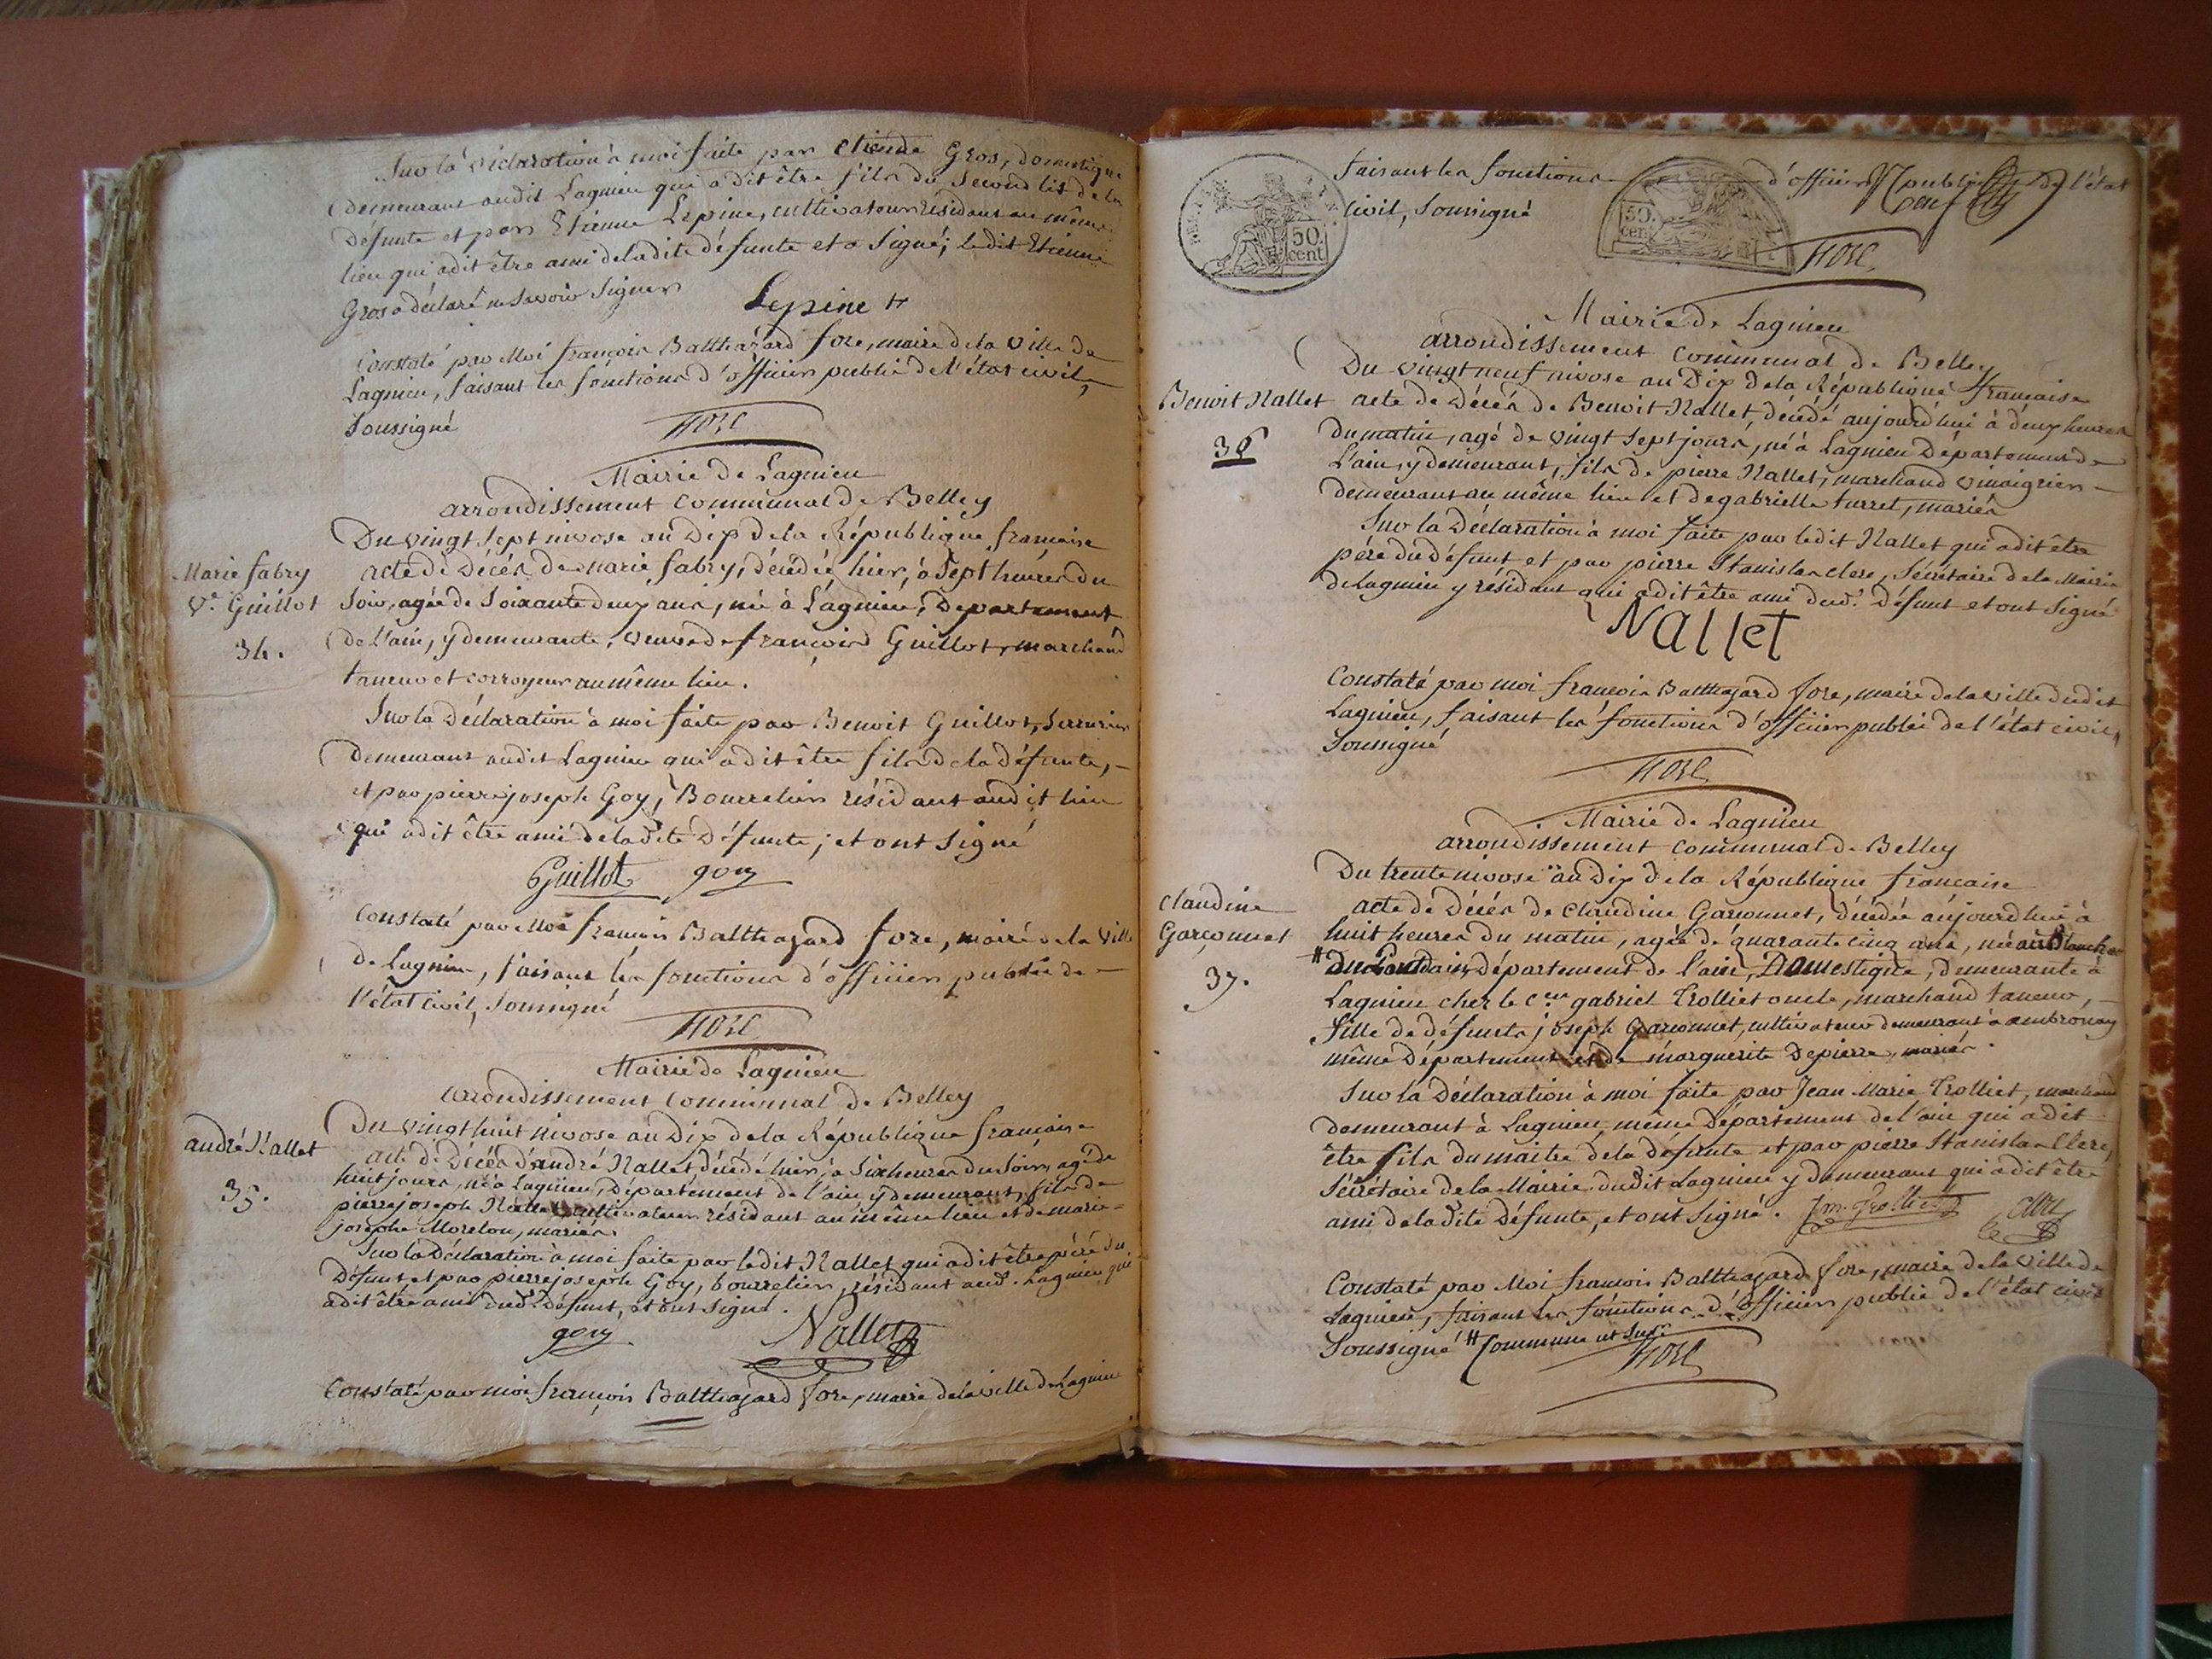 Sur la déclaration à moi faite par Etienne Gros, domestique
demeurant audit Lagnieu qui a dit être fils du second lit de la
défunte et par Etienne Lepine, cultivateur résidant au même
lieu qui a dit être ami de la dite défunte et a signé; ledit Etienne
Gros a déclaré ne savoir signer
Lepine
Constaté par Moi françois Balthazard fore, maire de la ville de
Lagnieu, faisant les fonctions d'officier public de l'état civil,
Soussigné
fore
Mairie de Lagnieu
arrondissement communal de Belley
Du vingt sept nivose an Dix de la République française
Marie fabry
Ve Guillot
34.
acte de Décès de marie fabry, décédée hier, à Sept heures du
Soir, agée de Soixante deux ans, née à Lagnieu, Département
de l'ain, y demeurante, veuve de françois Guillot, marchand
tanneur et corroyeur au même lieu.
Sur la Déclaration à moi faite par Benoit Guillot, Serrurier
demeurant audit Lagnieu qui a dit être fils de la défunte,
et par pierre joseph Goy, Bourrelier résidant audit lieu
qui a dit être ami de la dite Défunte; et ont Signé
Guillot goy
Constaté par Moi françois Balthazard fore, maire de la ville
de Lagnieu, faisant les fonctions d'officier public de
l'état civil, Soussigné
fore
Mairie de Lagnieu
arrondissement communal de Belley
Du vingt huit nivose an Dix de la République française
andré Nallet
35.
acte de Décès d'andré Nallet, décédé hier, à Six heures du Soir, agé de
huit jours, né à Lagnieu, Département de l'ain, y demeurant, fils de
pierre joseph Nallet, cultivateur résidant au même lieu et de marie=
josephe Morelon, mariés.
Sur la Déclaration à moi faite par ledit Nallet qui a dit être père du
Défunt, et par pierre joseph Goy, bourrelier, résidant aud. Lagnieu qui
a dit être ami dud.t défunt, et ont Signé.
goy Nallet
Constaté par moi françois Balthazard fore, maire de la ville de Lagnieu
faisant les fonctions d'officier public de l'état
civil, Soussigné
50 cent
50. cen
fore
Mairie de Lagnieu
arrondissement communal de Belley
Du vingt neuf nivose an Dix de la République française
Benoit Nallet
36
acte de Décès de Benoit Nallet, décédé aujourd'hui à deux heures
du matin, agé de vingt Sept jours, né à Lagnieu Département de
l'ain, y demeurant, fils de pierre Nallet, marchand vinaigrier
demeurant au même lieu et de gabrielle turret, mariés
Sur la Déclaration à moi faite par ledit Nallet qui a dit être
père du défunt et par pierre Stanislas clerc, Sécrétaire de la Mairie
de Lagnieu y résidant qui a dit être ami dud.t défunt et ont Signé
Nallet
Constaté par moi françois Balthazard fore, maire de la ville dudit
Lagnieu, faisant les fonctions d'officier public de l'état civil,
Soussigné
fore
Mairie de Lagnieu
arrondissement communal de Belley
Du trente nivose an Dix de la République française
claudine
Garçonnet
37.
acte de Décès de claudine Garçonnet, décédée aujourd'hui à
huit heures du matin, agée de quarante cinq ans, née
département de l'ain, Domestique, demeurante à
Lagnieu chez le c.en gabriel Trolliet oncle, marchand taneur,
fille de défunts joseph Garçonnet, cultivateur demeurant à ambronay
même Département et de marguerite Depierre, mariés.
Sur la Déclaration à moi faite par Jean Marie Trolliet, marchand
demeurant à Lagnieu, même Département de l'ain qui a dit
être fils du maitre de la défunte et par pierre Stanislas Clerc,
Sécrétaire de la Mairie dudit Lagnieu y demeurant qui a dit être
ami de la dite Défunte, et ont Signé. Jm. Trolliet Clerc
Constaté par Moi françois Balthazard fore, maire de la ville de
Lagnieu, faisant les fonctions d'officier public de l'état civil
Soussigné # Commune
fore